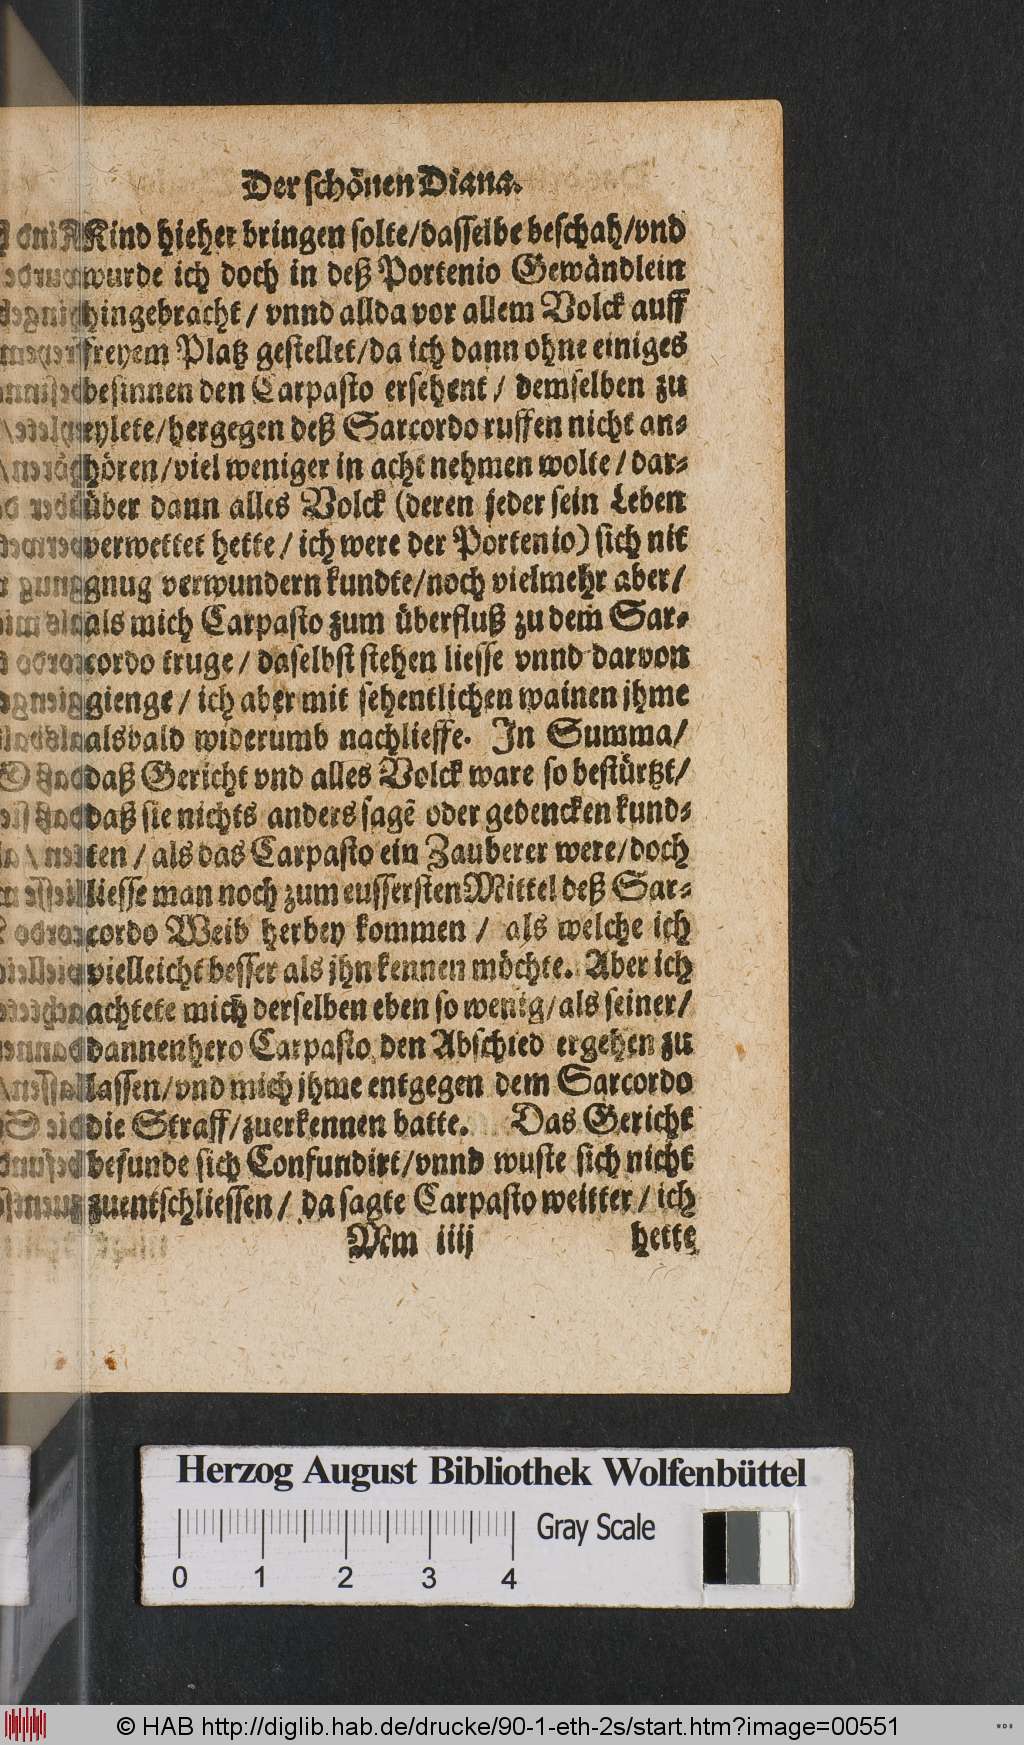 Der schönen Diana.
Kind hieher bringen solte/dasselbe beschah/vnd
wurde ich doch in deß Portenio Gewändlein
hingebracht/ vnnd allda vor allem Volck auff
freyem Platz gestellet/da ich dann ohne einiges
besinnen den Carpasto ersehent/ demselben zu
eylete/hergegen deß Sarcordo ruffen nicht an-
hören/viel weniger in acht nehmen wolte/ dar-
über dann alles Volck (deren jeder sein Leben
verwettet hette/ ich were der Portenio) sich nit
gnug verwundern kundte/noch vielmehr aber/
als mich Carpasto zum überfluß zu dem Sar-
cordo truge/ daselbst stehen liesse vnnd darvon
gienge/ ich aber mit sehentlichen wainen jhme
alsbald widerumb nachlieffe. In Summa/
daß Gericht vnd alles Volck ware so bestürtzt/
daß sie nichts anders sagẽ oder gedencken kund-
ten/ als das Carpasto ein Zauberer were/doch
liesse man noch zum eussersten Mittel deß Sar-
cordo Weib herbey kommen/ als welche ich
vielleicht besser als jhn kennen möchte. Aber ich
achtete mich derselben eben so wenig/als seiner/
dannenhero Carpasto den Abschied ergehen zu
lassen/vnd mich jhme entgegen dem Sarcordo
die Straff/zuerkennen batte. Das Gericht
befunde sich Confundirt/vnnd wuste sich nicht
zuentschliessen/ da sagte Carpasto weitter/ ich
Mm iiij hette
Herzog August Bibliothek Wolfenbüttel
Gray Scale
0 1 2 3 4
© HAB http://diglib.hab.de/drucke/90-1-eth-2s/start.htm?image=00551